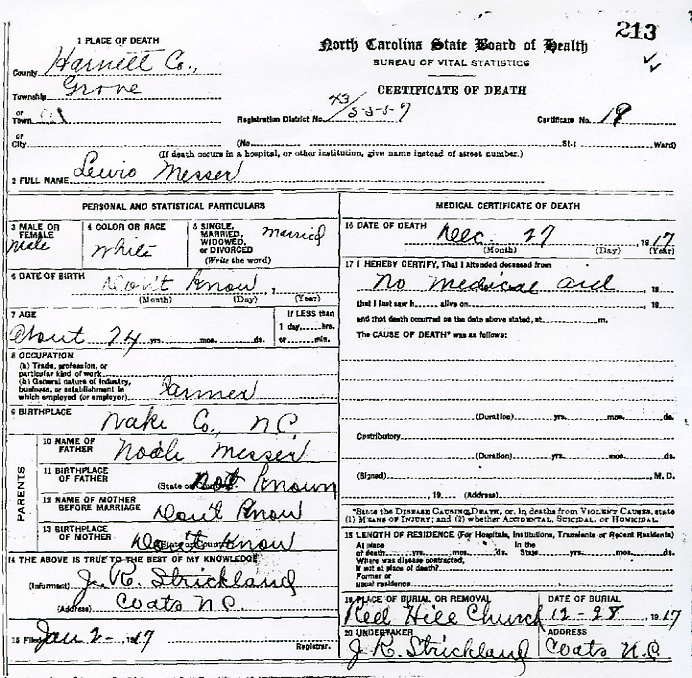 213
1 PLACE OF DEATH
North Carolina State Board of Health
BUREAU OF VITAL STATISTICS
CERTIFICATE OF DEATH
County Harnett Co.,
Township Grove
or Town
Registration District No. 43/5557
Certificate No. 19
or City (No. St.: Ward)
(If death occurs in a hospital, or other institution, give name instead of street number.)
2 FULL NAME Lewis Messer
PERSONAL AND STATISTICAL PARTICULARS
3 MALE OR FEMALE Male
4 COLOR OR RACE White
5 SINGLE, MARRIED, WIDOWED, or DIVORCED (Write the word) Married
6 DATE OF BIRTH Don't Know
(Month) (Day) (Year)
7 AGE About 74 yrs. mos. ds.
If LESS than 1 day, hrs. or min.
8 OCCUPATION
(a) Trade, profession, or particular kind of work
(b) General nature of industry, business, or establishment in which employed (or employer) Farmer
9 BIRTHPLACE Wake Co., N.C.
PARENTS
10 NAME OF FATHER Noah Messer
11 BIRTHPLACE OF FATHER (State or Country) Not Known
12 NAME OF MOTHER BEFORE MARRIAGE Don't Know
13 BIRTHPLACE OF MOTHER (State or Country) Don't Know
14 THE ABOVE IS TRUE TO THE BEST OF MY KNOWLEDGE
(Informant) J. R. Strickland
(Address) Coats N.C.
15 Filed Jan 2- 1917 Registrar.
MEDICAL CERTIFICATE OF DEATH
16 DATE OF DEATH Dec. 27 1917
(Month) (Day) (Year)
17 I HEREBY CERTIFY, That I attended deceased from
No medical aid 19
that I last saw h alive on 19
and that death occurred on the date above stated, at m.
The CAUSE OF DEATH* was as follows:
(Duration) yrs. mos. ds.
Contributory
(Duration) yrs. mos. ds.
(Signed) M. D.
19 (Address)
*State the DISEASE CAUSING DEATH, or, in deaths from VIOLENT CAUSES, state
(1) MEANS OF INJURY; and (2) whether ACCIDENTAL, SUICIDAL, or HOMICIDAL.
18 LENGTH OF RESIDENCE (For Hospitals, Institutions, Transients or Recent Residents)
At place of death yrs. mos. ds. In the State yrs. mos. ds.
Where was disease contracted, if not at place of death?
Former or usual residence
19 PLACE OF BURIAL OR REMOVAL Red Hill Church
DATE OF BURIAL 12-28 1917
20 UNDERTAKER J. R. Strickland
ADDRESS Coats N.C.